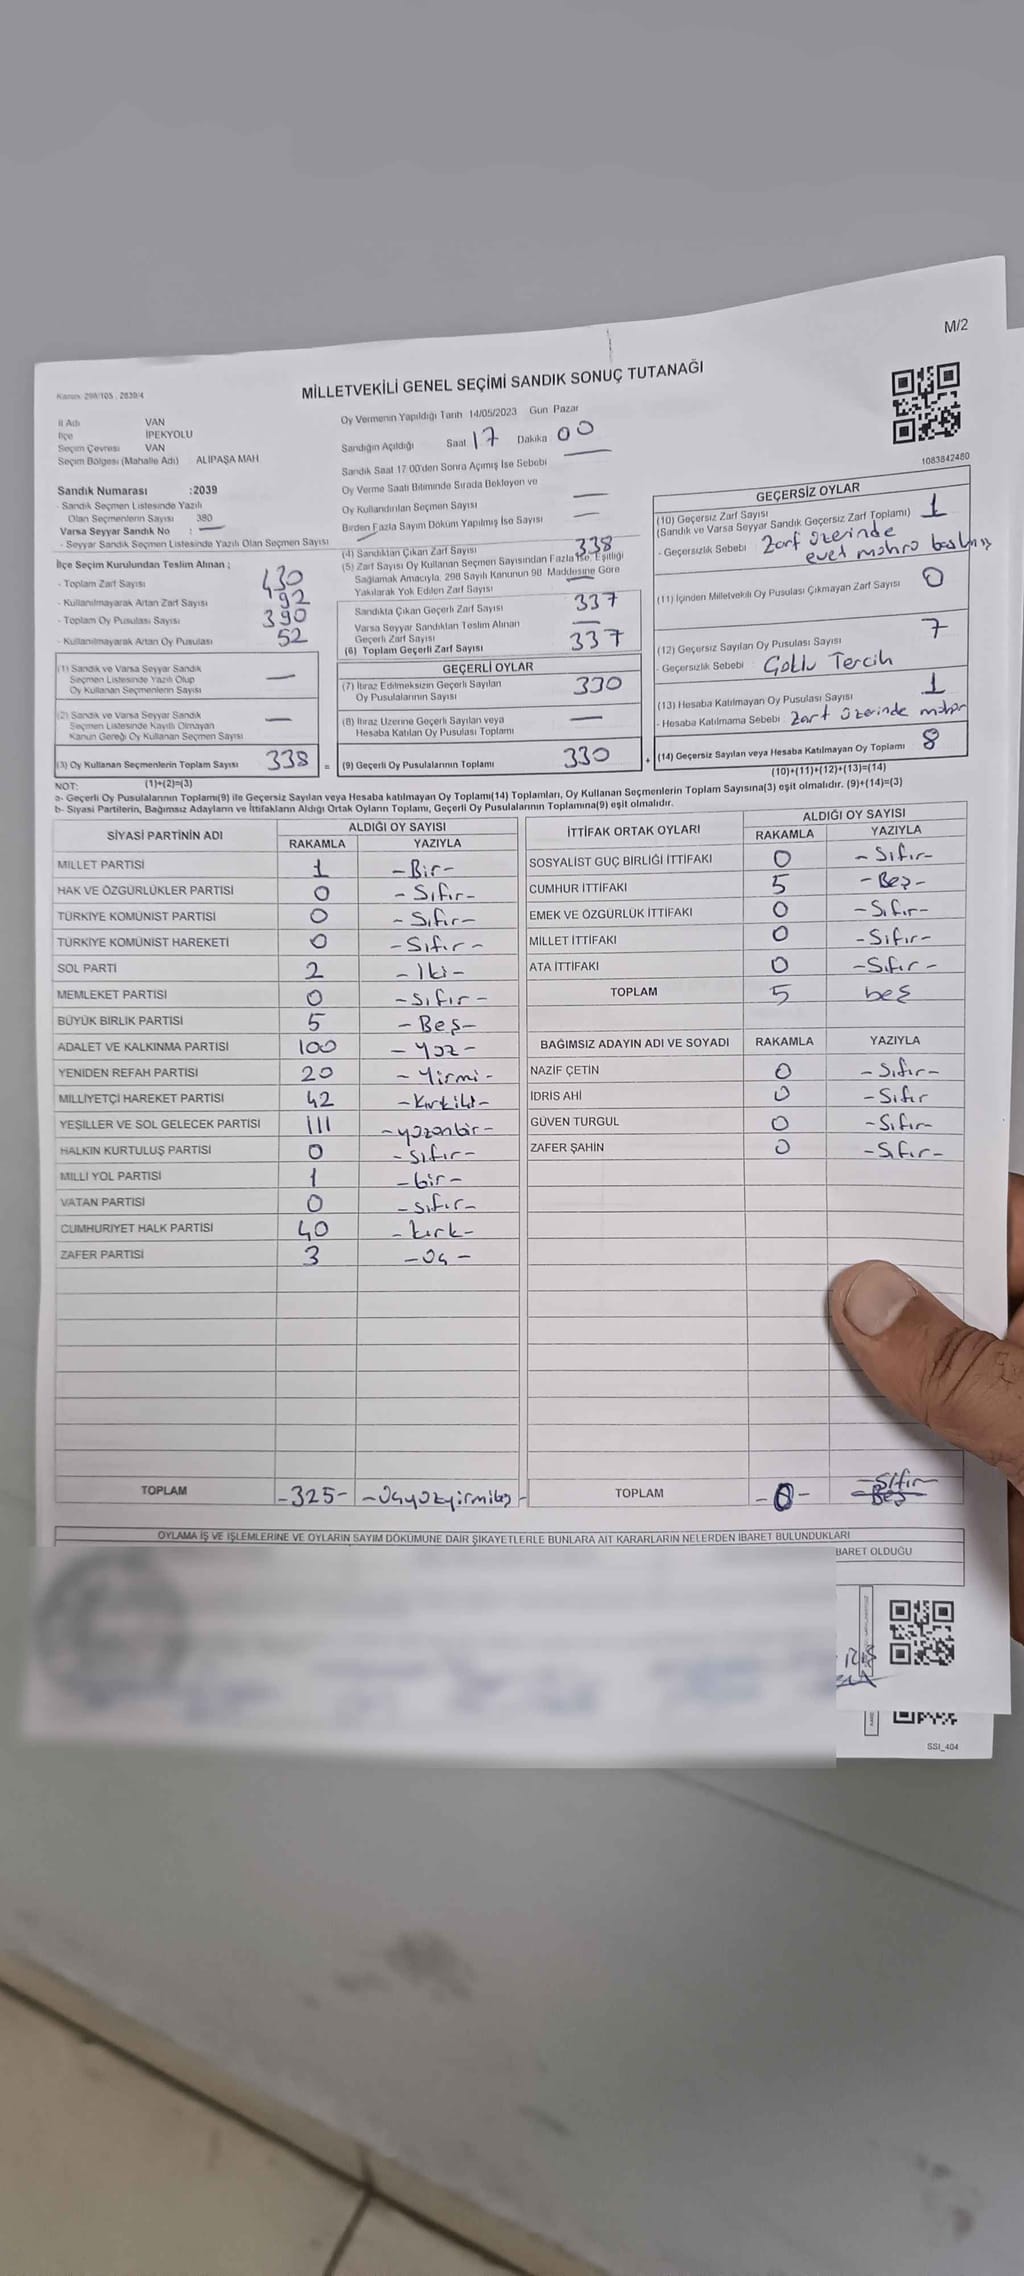 M/2
Kanun: 298/105 , 2839/4
MİLLETVEKİLİ GENEL SEÇİMİ SANDIK SONUÇ TUTANAĞI
İl Adı VAN
İlçe İPEKYOLU
Seçim Çevresi VAN
Seçim Bölgesi (Mahalle Adı) ALİPAŞA MAH
Sandık Numarası :2039
- Sandık Seçmen Listesinde Yazılı
Olan Seçmenlerin Sayısı 380
Varsa Seyyar Sandık No : —
- Seyyar Sandık Seçmen Listesinde Yazılı Olan Seçmen Sayısı —
İlçe Seçim Kurulundan Teslim Alınan ;
- Toplam Zarf Sayısı 430
- Kullanılmayarak Artan Zarf Sayısı 92
- Toplam Oy Pusulası Sayısı 390
- Kullanılmayarak Artan Oy Pusulası 52
(1) Sandık ve Varsa Seyyar Sandık
Seçmen Listesinde Yazılı Olup
Oy Kullanan Seçmenlerin Sayısı —
(2) Sandık ve Varsa Seyyar Sandık
Seçmen Listesinde Kayıtlı Olmayan
Kanun Gereği Oy Kullanan Seçmen Sayısı —
(3) Oy Kullanan Seçmenlerin Toplam Sayısı 338 =
Oy Vermenin Yapıldığı Tarih 14/05/2023 Gün Pazar
Sandığın Açıldığı Saat 17 Dakika 00
Sandık Saat 17:00'den Sonra Açımış İse Sebebi —
Oy Verme Saati Bitiminde Sırada Bekleyen ve
Oy Kullandırılan Seçmen Sayısı —
Birden Fazla Sayım Döküm Yapılmış İse Sayısı —
(4) Sandıktan Çıkan Zarf Sayısı 338
(5) Zarf Sayısı Oy Kullanan Seçmen Sayısından Fazla İse, Eşitliği
Sağlamak Amacıyla, 298 Sayılı Kanunun 98. Maddesine Göre
Yakılarak Yok Edilen Zarf Sayısı —
Sandıkta Çıkan Geçerli Zarf Sayısı 337
Varsa Seyyar Sandıktan Teslim Alınan
Geçerli Zarf Sayısı —
(6) Toplam Geçerli Zarf Sayısı 337
GEÇERLİ OYLAR
(7) İtiraz Edilmeksizin Geçerli Sayılan
Oy Pusulalarının Sayısı 330
(8) İtiraz Üzerine Geçerli Sayılan veya
Hesaba Katılan Oy Pusulası Toplamı —
(9) Geçerli Oy Pusulalarının Toplamı 330 +
1083842480
GEÇERSİZ OYLAR
(10) Geçersiz Zarf Sayısı 1
(Sandık ve Varsa Seyyar Sandık Geçersiz Zarf Toplamı)
- Geçersizlik Sebebi Zarf üzerinde
evet mührü
(11) İçinden Milletvekili Oy Pusulası Çıkmayan Zarf Sayısı 0
(12) Geçersiz Sayılan Oy Pusulası Sayısı 7
- Geçersizlik Sebebi Çoklu Tercih
(13) Hesaba Katılmayan Oy Pusulası Sayısı 1
- Hesaba Katılmama Sebebi Zarf üzerinde mühür
(14) Geçersiz Sayılan veya Hesaba Katılmayan Oy Toplamı 8
NOT: (1)+(2)=(3) (10)+(11)+(12)+(13)=(14)
a- Geçerli Oy Pusulalarının Toplamı(9) ile Geçersiz Sayılan veya Hesaba katılmayan Oy Toplamı(14) Toplamları, Oy Kullanan Seçmenlerin Toplam Sayısına(3) eşit olmalıdır. (9)+(14)=(3)
b- Siyasi Partilerin, Bağımsız Adayların ve İttifakların Aldığı Ortak Oyların Toplamı, Geçerli Oy Pusulalarının Toplamına(9) eşit olmalıdır.
SİYASİ PARTİNİN ADI ALDIĞI OY SAYISI
RAKAMLA YAZIYLA
MİLLET PARTİSİ 1 -Bir-
HAK VE ÖZGÜRLÜKLER PARTİSİ 0 -Sıfır-
TÜRKİYE KOMÜNİST PARTİSİ 0 -Sıfır-
TÜRKİYE KOMÜNİST HAREKETİ 0 -Sıfır-
SOL PARTİ 2 -İki-
MEMLEKET PARTİSİ 0 -Sıfır-
BÜYÜK BİRLİK PARTİSİ 5 -Beş-
ADALET VE KALKINMA PARTİSİ 100 -Yüz-
YENİDEN REFAH PARTİSİ 20 -Yirmi-
MİLLİYETÇİ HAREKET PARTİSİ 42 -Kırkiki-
YEŞİLLER VE SOL GELECEK PARTİSİ 111 -yüzonbir-
HALKIN KURTULUŞ PARTİSİ 0 -sıfır-
MİLLİ YOL PARTİSİ 1 -bir-
VATAN PARTİSİ 0 -sıfır-
CUMHURİYET HALK PARTİSİ 40 -kırk-
ZAFER PARTİSİ 3 -Üç-
TOPLAM -325- -Üçyüzyirmibeş-
İTTİFAK ORTAK OYLARI ALDIĞI OY SAYISI
RAKAMLA YAZIYLA
SOSYALİST GÜÇ BİRLİĞİ İTTİFAKI 0 -Sıfır-
CUMHUR İTTİFAKI 5 -Beş-
EMEK VE ÖZGÜRLÜK İTTİFAKI 0 -Sıfır-
MİLLET İTTİFAKI 0 -Sıfır-
ATA İTTİFAKI 0 -Sıfır-
TOPLAM 5 beş
BAĞIMSIZ ADAYIN ADI VE SOYADI RAKAMLA YAZIYLA
NAZİF ÇETİN 0 -Sıfır-
İDRİS AHİ 0 -Sıfır
GÜVEN TURGUL 0 -Sıfır-
ZAFER ŞAHİN 0 -Sıfır-
TOPLAM -0- -Sıfır-
Beş
OYLAMA İŞ VE İŞLEMLERİNE VE OYLARIN SAYIM DÖKÜMÜNE DAİR ŞİKAYETLERLE BUNLARA AİT KARARLARIN NELERDEN İBARET BULUNDUKLARI
BARET OLDUĞU
SSİ_404